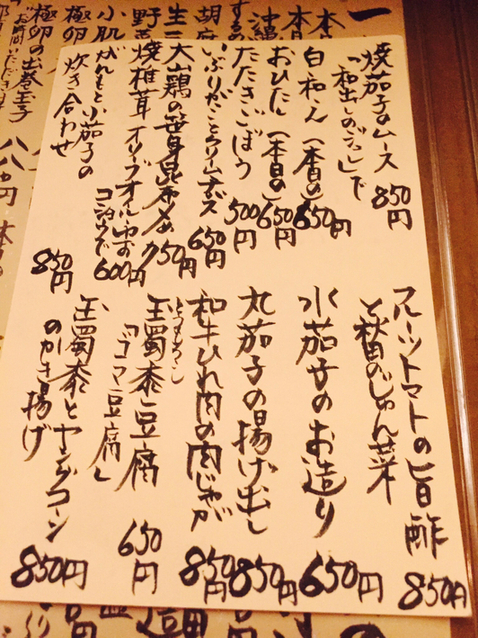 焼茄子のムース
「和出しのジュレ」で 850円
白和え(本日の) 650円
おひたし(本日の) 650円
たたきごぼう 500円
いぶりがっことクリームチーズ 650円
大山鶏の笹身昆布〆
焼椎茸 オリーブオイルゆず
コショウで 600円
がんもと小茄子の
炊き合わせ 850円
フルーツトマトの旨酢
と秋田のじゅん菜 850円
水茄子のお造り 650円
丸茄子の揚げ出し 850円
和牛ひれ肉の肉じゃが 850円
とうもろこし
玉蜀黍豆腐
「ゴマ豆腐」 650円
玉蜀黍とヤングコーン
のかき揚げ 850円
極卵の出巻玉子